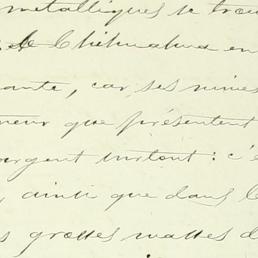 métalliques se trou
de Chihuahua en
ante, car ses mines
neur que présentent
argent surtout: c'e
, ainsi que dans le
s grottes mattes d